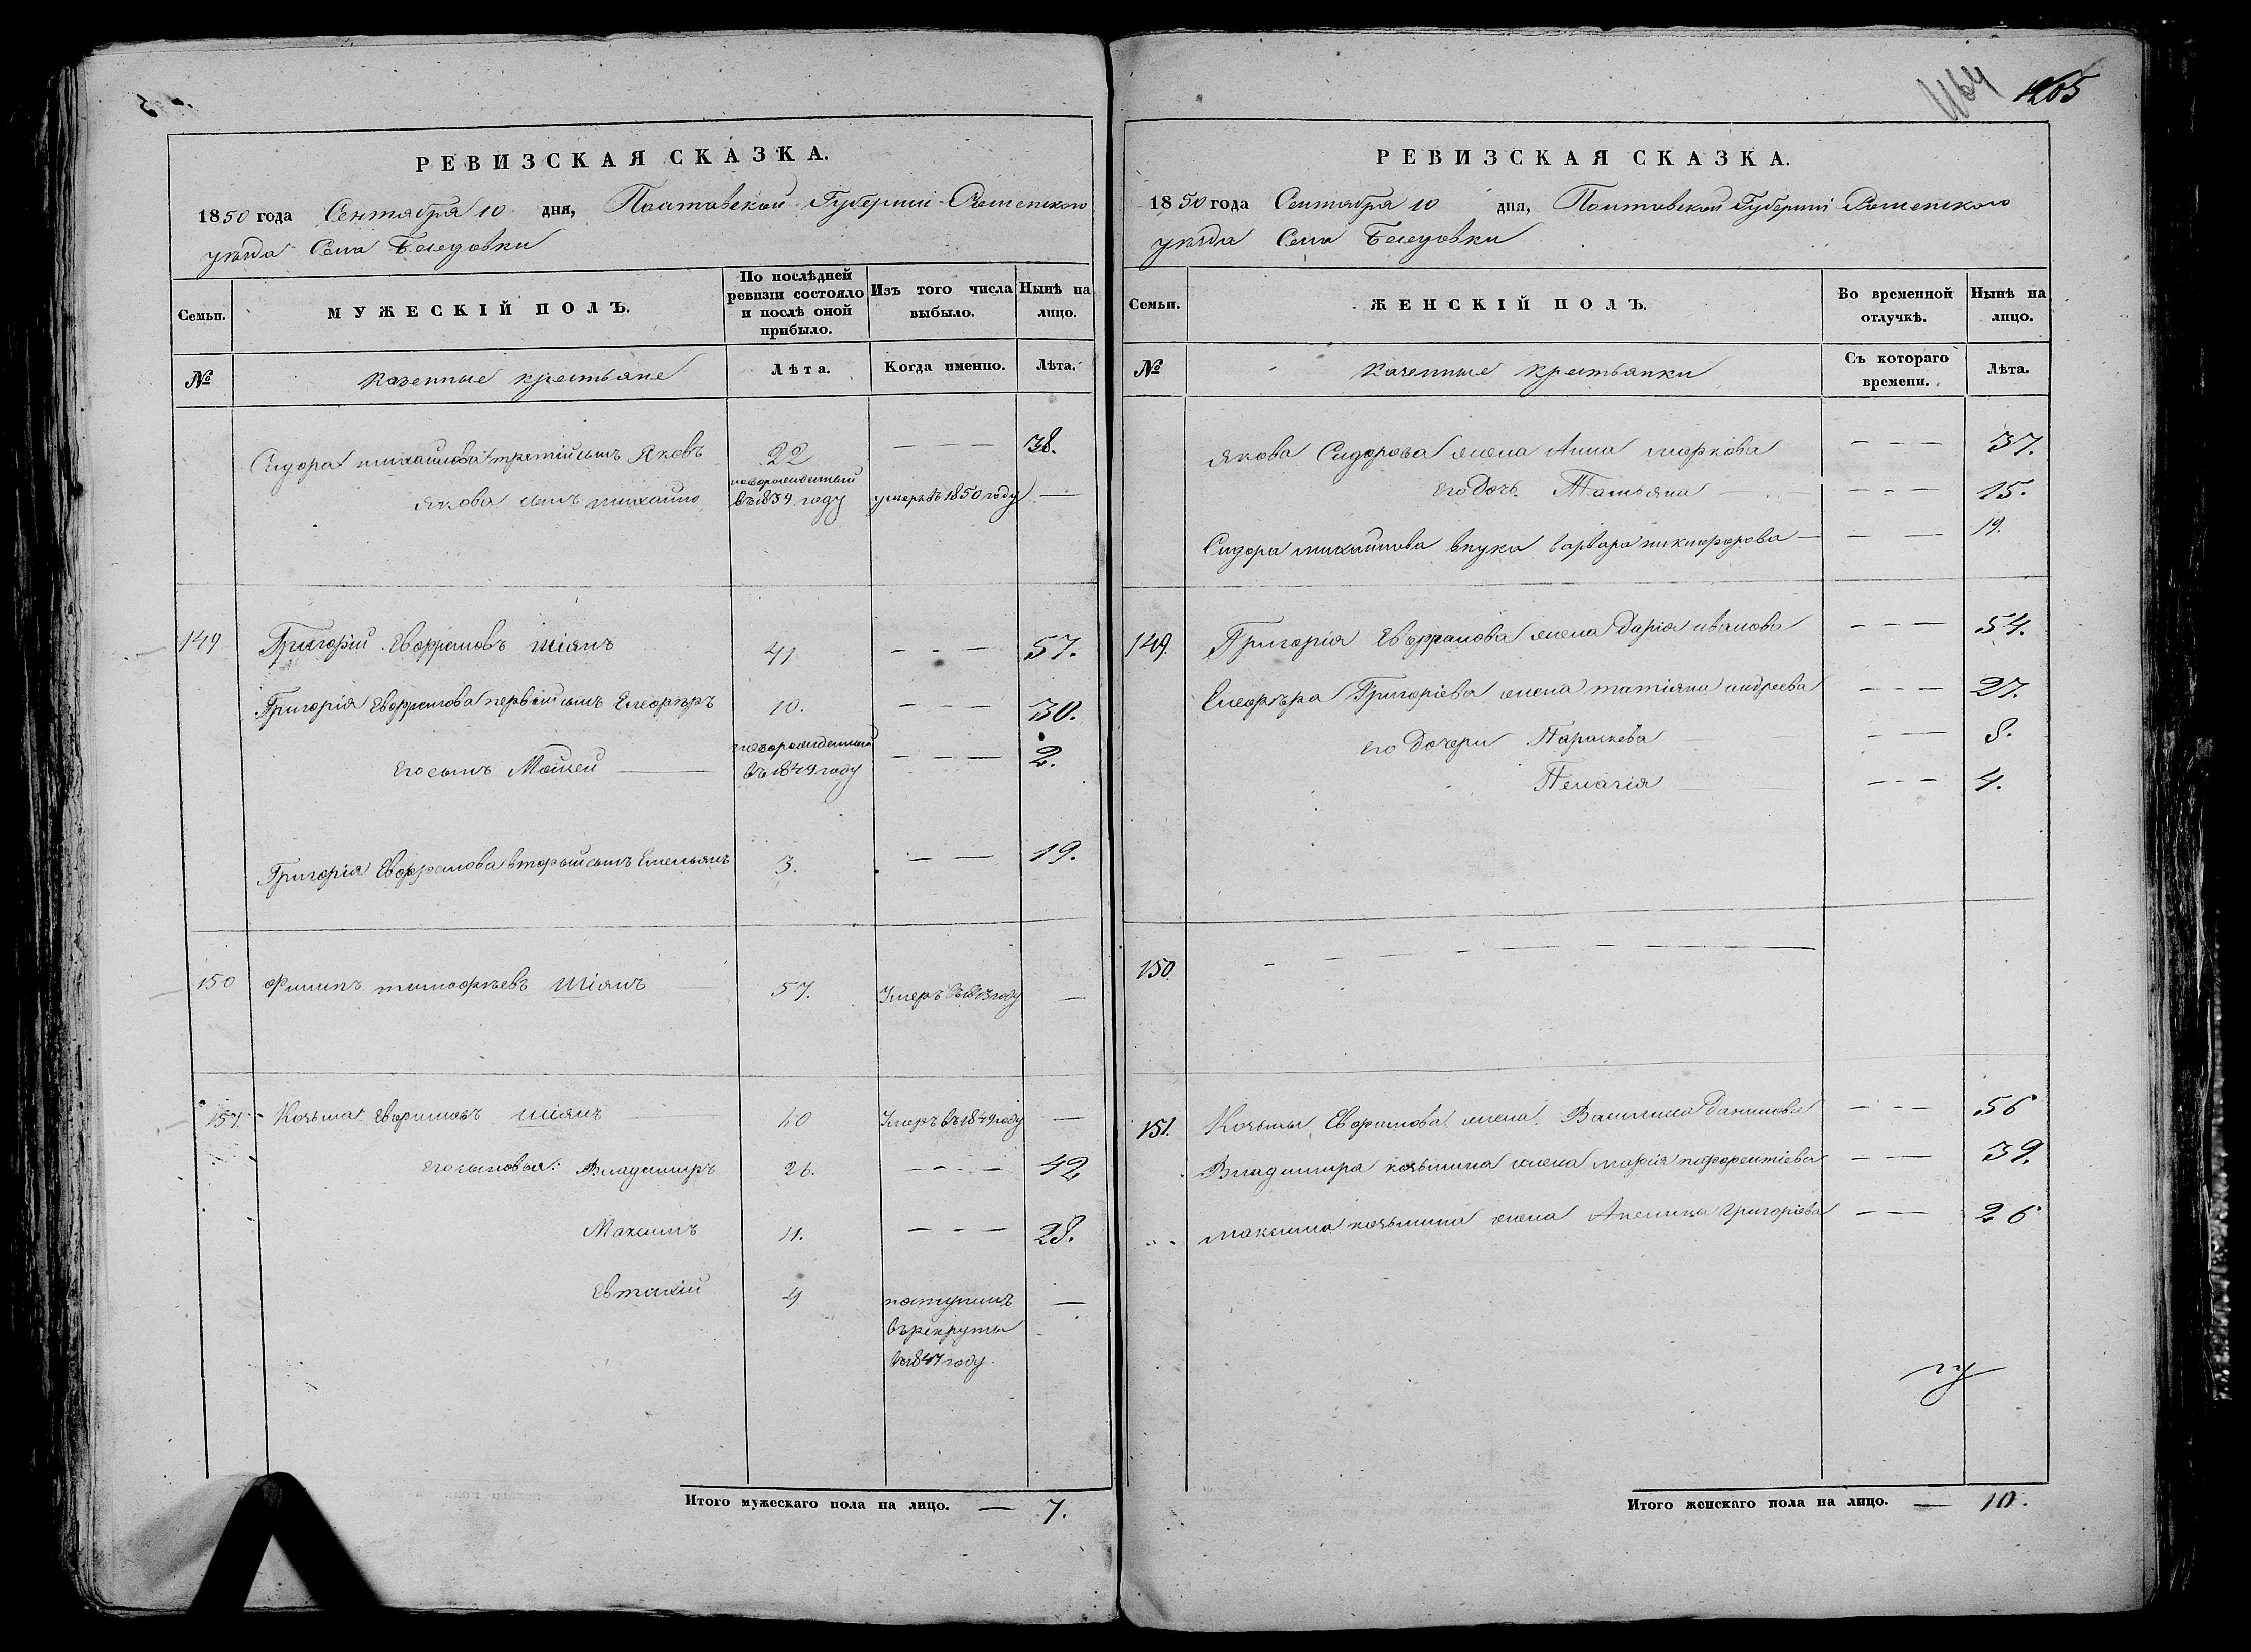 1265
РЕВИЗСКАЯ СКАЗКА.
1850 года Сентября 10 дня, Полтавской Губерніи Роменского
уезда Села Беледовки
Семьи.
МУЖЕСКІЙ ПОЛЪ.
По послѣдней ревизіи состояло и послѣ оной прибыло.
Изъ того числа выбыло.
Нынѣ на лицо.
№
Казенные крестьяне
Лѣта.
Когда именно.
Лѣта.
Сидора Михайлова третій сынъ Яковъ 22 — — — 38.
Якова сынъ Михайло новорожденный въ 1834 году умеръ въ 1850 году —
149 Григорій Евфремовъ Шіянъ 41 — — — 57.
Григорія Евфремова первый сынъ Елеоферъ 10. — — — 30.
Его сынъ Моисей новорожденный въ 1849 году — — — 2.
Григорія Евфремова вторый сынъ Емельянъ 3. — — 19.
150 Филипъ Тимофѣевъ Шіянъ 57. Умеръ въ году —
151. Козьма Евфимовъ Шіянъ 40 Умеръ въ 1849 году —
его сыновья: Владимиръ 26. — — — 42
Максимъ 11. — — — 28.
Евтихій 4 поступилъ —
въ рекруты
въ 1847 году.
Итого мужескаго пола на лицо. — 7.
РЕВИЗСКАЯ СКАЗКА.
1850 года Сентября 10 дня, Полтавской Губерніи Роменского
уезда Села Беледовки
Семьи.
ЖЕНСКІЙ ПОЛЪ.
Во временной отлучкѣ.
Нынѣ на лицо.
№
Казенные крестьянки
Съ котораго времени.
Лѣта.
Якова Сидорова жена Анна Маркова — — — 37.
Его дочь Татьяна — — — 15.
Сидора Михайлова внука Варвара Никифорова — — — 19.
149. Григорія Евфремова жена Дарія Иванова — — — 54.
Елеофера Григоріева жена Татіяна Андреева — — — 27.
его дочери Параскева — — 8.
Пелагія — — — 4.
150.
151. Козьмы Евфимова жена Василиса Данилова — — — 56
Владимира Козьмина жена Марія Парфентіева — — 39.
Максима Козьмина жена Акелина Григоріева — — 26
Итого женскаго пола на лицо. — 10.